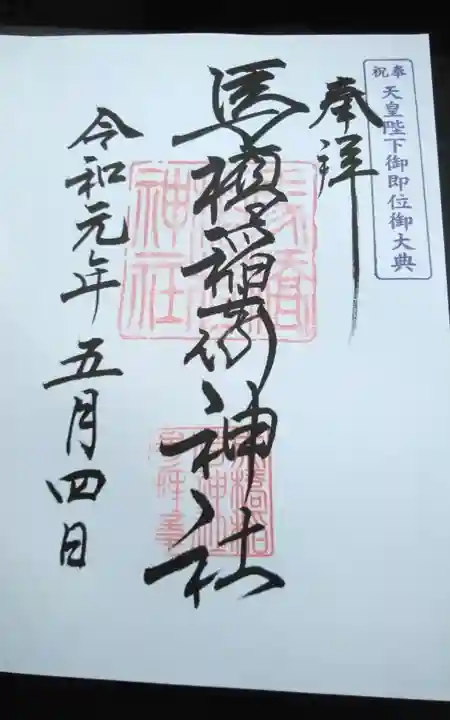 奉祝
天皇陛下御即位御大典
奉拝
馬橋稲荷神社
令和元年五月四日